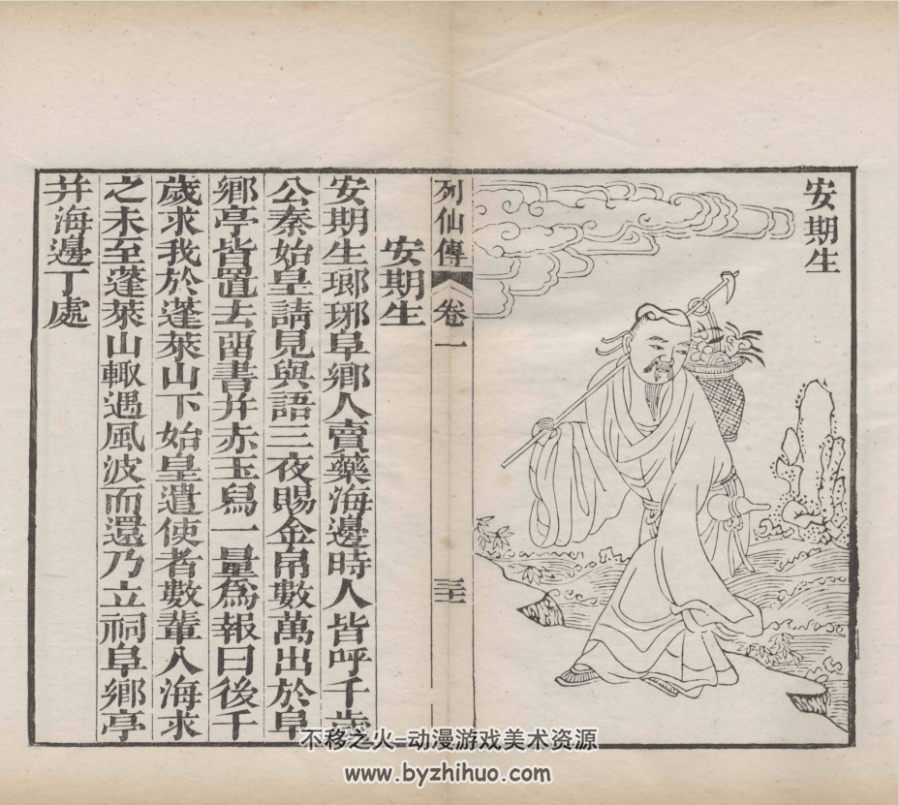 安期生
列仙傳
卷一
三十二
安期生
安期生瑯琊阜鄉人賣藥海邊時人皆呼千歲
公秦始皇請見與語三夜賜金帛數萬出於阜
鄉亭皆置去畱書并赤玉舄一量爲報曰後千
歲求我於蓬萊山下始皇遣使者數輩入海求
之未至蓬萊山輙遇風波而還乃立祠阜鄉亭
并海邊丁處
不移之火-动漫游戏美术资源
www.byzhihuo.com